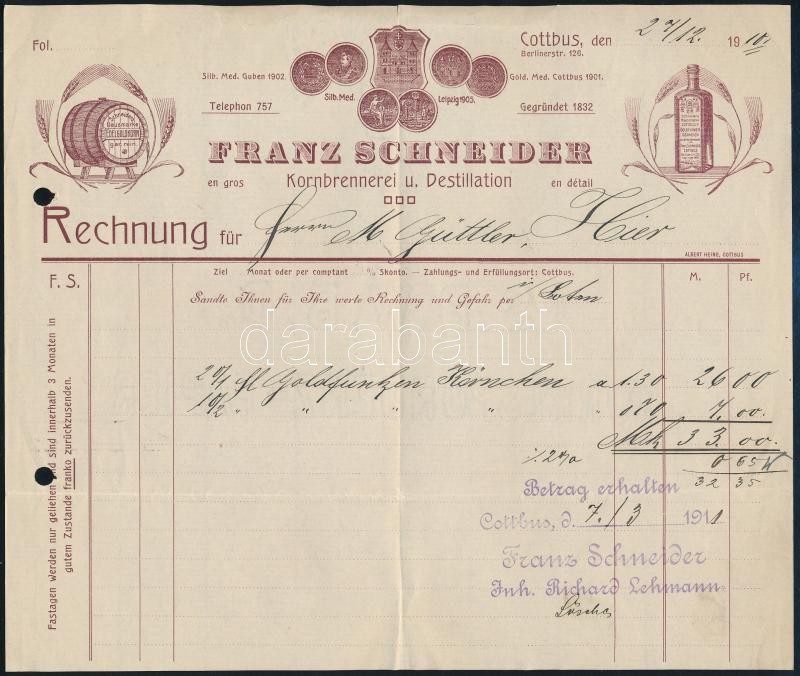 Fol.
Cottbus, den 27/12. 1910
Berlinerstr. 126.
Silb. Med. Guben 1902.
Gold. Med. Cottbus 1901.
Silb. Med. Leipzig 1905.
Telephon 757
Gegründet 1832
EDELGOLDKORN
FRANZ SCHNEIDER
en gros Kornbrennerei u. Destillation en détail
Rechnung für Herrn M Güttler, Hier
ALBERT HEINE, COTTBUS
F. S.
Ziel Monat oder per comptant % Skonto. — Zahlungs- und Erfüllungsort: Cottbus.
M. Pf.
Sandte Ihnen für Ihre werte Rechnung und Gefahr per Boten
darabanth
20/1 fl Goldfunken Körnchen a 1.30 26 00
10/2 " " " " " 0 70 7.00.
Mk 33.00.
./. 2% 0 65
32 35
Betrag erhalten
Cottbus, d. 7./3 1911
Franz Schneider
Inh. Richard Lehmann
Fastagen werden nur geliehen und sind innerhalb 3 Monaten in
gutem Zustande franko zurückzusenden.